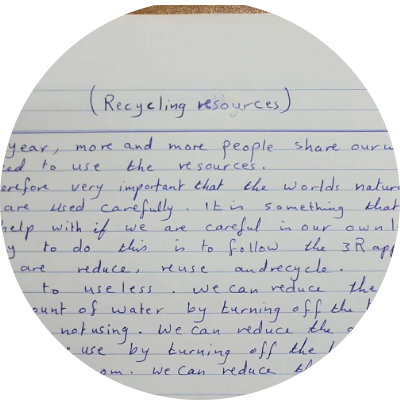 (Recycling resources)
year, more and more people share our
to use the resources.
very important that the worlds
are used carefully. It is something that
help with if we are careful in our own
to do this is to follow the 3R
are reduce, reuse andrecycle.
to useless. We can reduce the
of water by turning off the
notusing. We can reduce the
use by turning off the
We can reduce